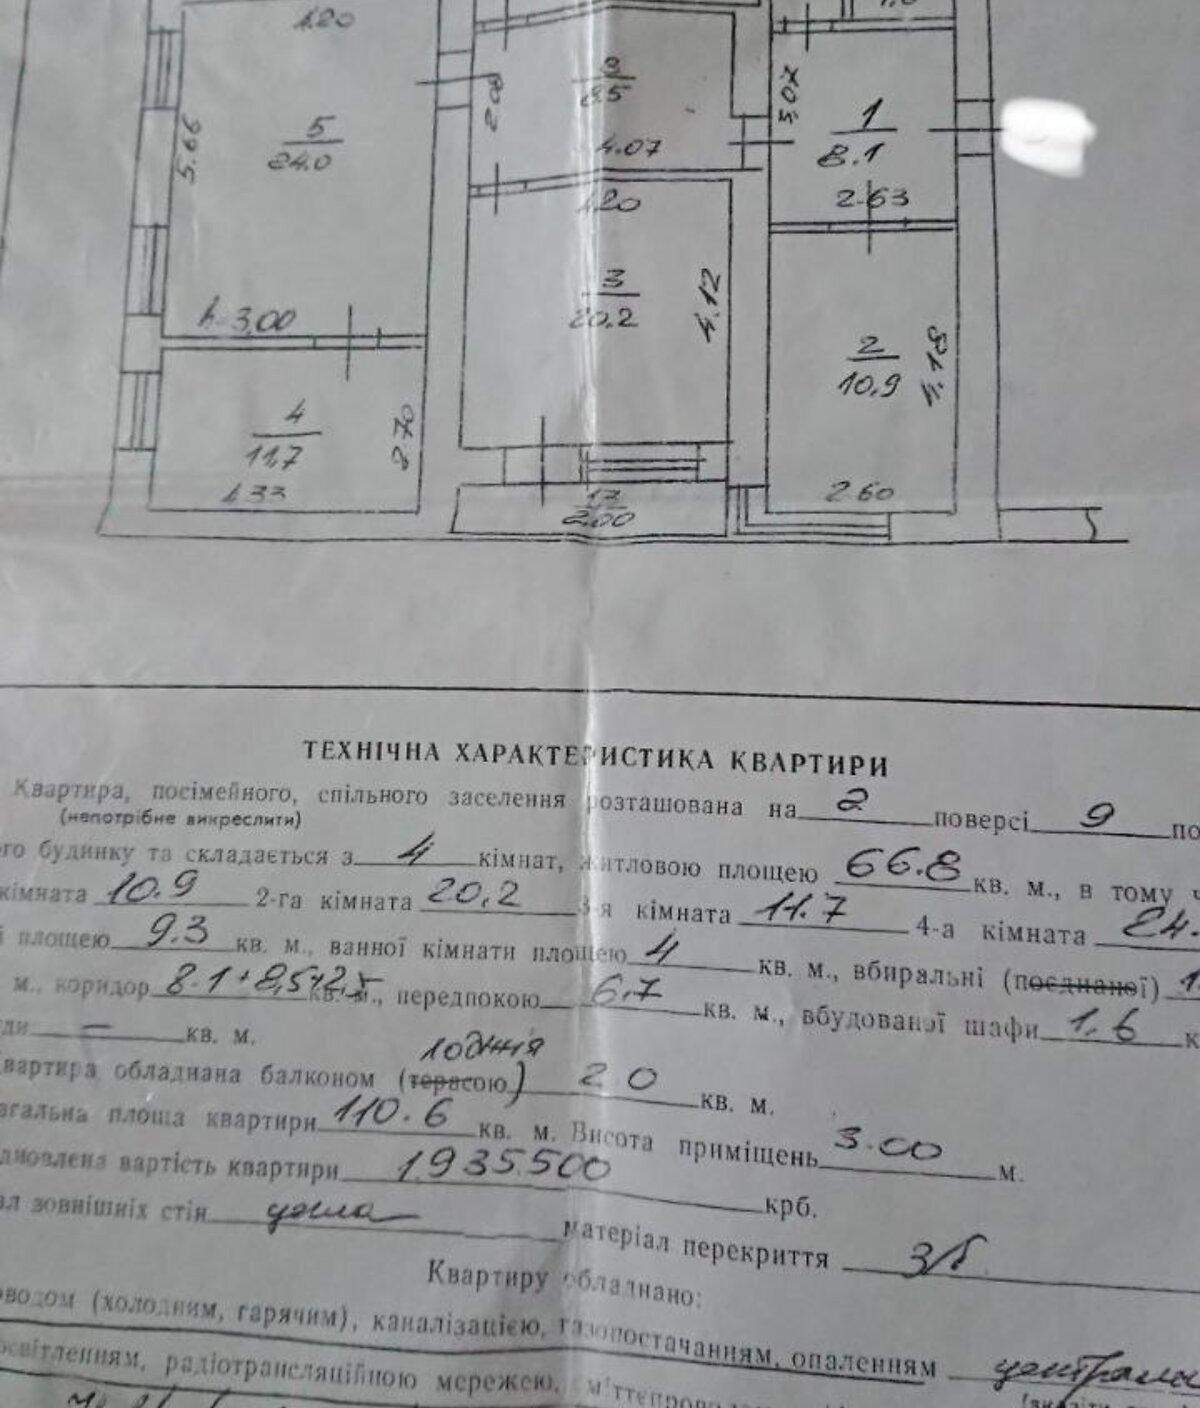 4.20
5
24.0
5.66
h-3,00
4
11,7
2.70
4.33
2.08
8,5
4.07
4.20
3
20.2
4.12
17
2.00
3,07
1
8.1
2.63
2
10.9
4.18
2.60
ТЕХНІЧНА ХАРАКТЕРИСТИКА КВАРТИРИ
Квартира, посімейного, спільного заселення розташована на 2 поверсі 9 по
(непотрібне викреслити)
го будинку та складається з 4 кімнат, житловою площею 66.8 кв. м., в тому ч
кімната 10.9 2-га кімната 20,2 3-я кімната 11.7 4-а кімната 24.
площею 9.3 кв. м., ванної кімнати площею 4 кв. м., вбиральні (поєднаної) 1.
м., коридор 8.1+8,5+2, кв. м., передпокою 6.7 кв. м., вбудованої шафи 1.6 к
ди — кв. м.
лоджія
квартира обладнана балконом (терасою) 2.0 кв. м.
агальна площа квартири 110.6 кв. м. Висота приміщень 3.00 м.
дновлена вартість квартири 1935.500 крб.
ал зовнішніх стін цегла матеріал перекриття з/б
Квартиру обладнано:
оводом (холодним, гарячим), каналізацією, газопостачанням, опаленням централь
освітленням, радіотрансляційною мережею,